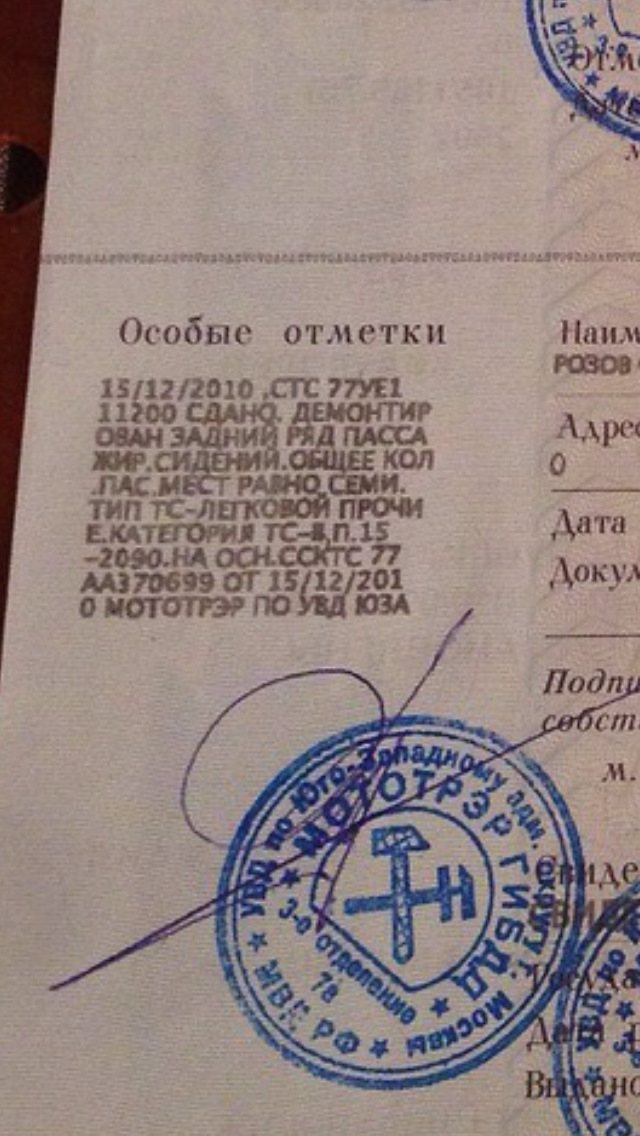 Особые отметки
15/12/2010 ,СТС 77УЕ1
11200 СДАНО. ДЕМОНТИР
ОВАН ЗАДНИЙ РЯД ПАССА
ЖИР.СИДЕНИЙ.ОБЩЕЕ КОЛ
.ПАС.МЕСТ РАВНО СЕМИ.
ТИП ТС-ЛЕГКОВОЙ ПРОЧИ
Е.КАТЕГОРИЯ ТС-В,П.15
-2090.НА ОСН.ССКТС 77
АА370699 ОТ 15/12/201
0 МОТОТРЭР ПО УВД ЮЗА
УВД по Юго-Западному адм. округу г. Москвы
МОТОТРЭР ГИБДД
3-е отделение
78
МВД РФ
Наим
РОЗОВ
Адрес
0
Дата
Докум
Подпи
собст
м.
Свиде
Госуда
Дата
Выдано